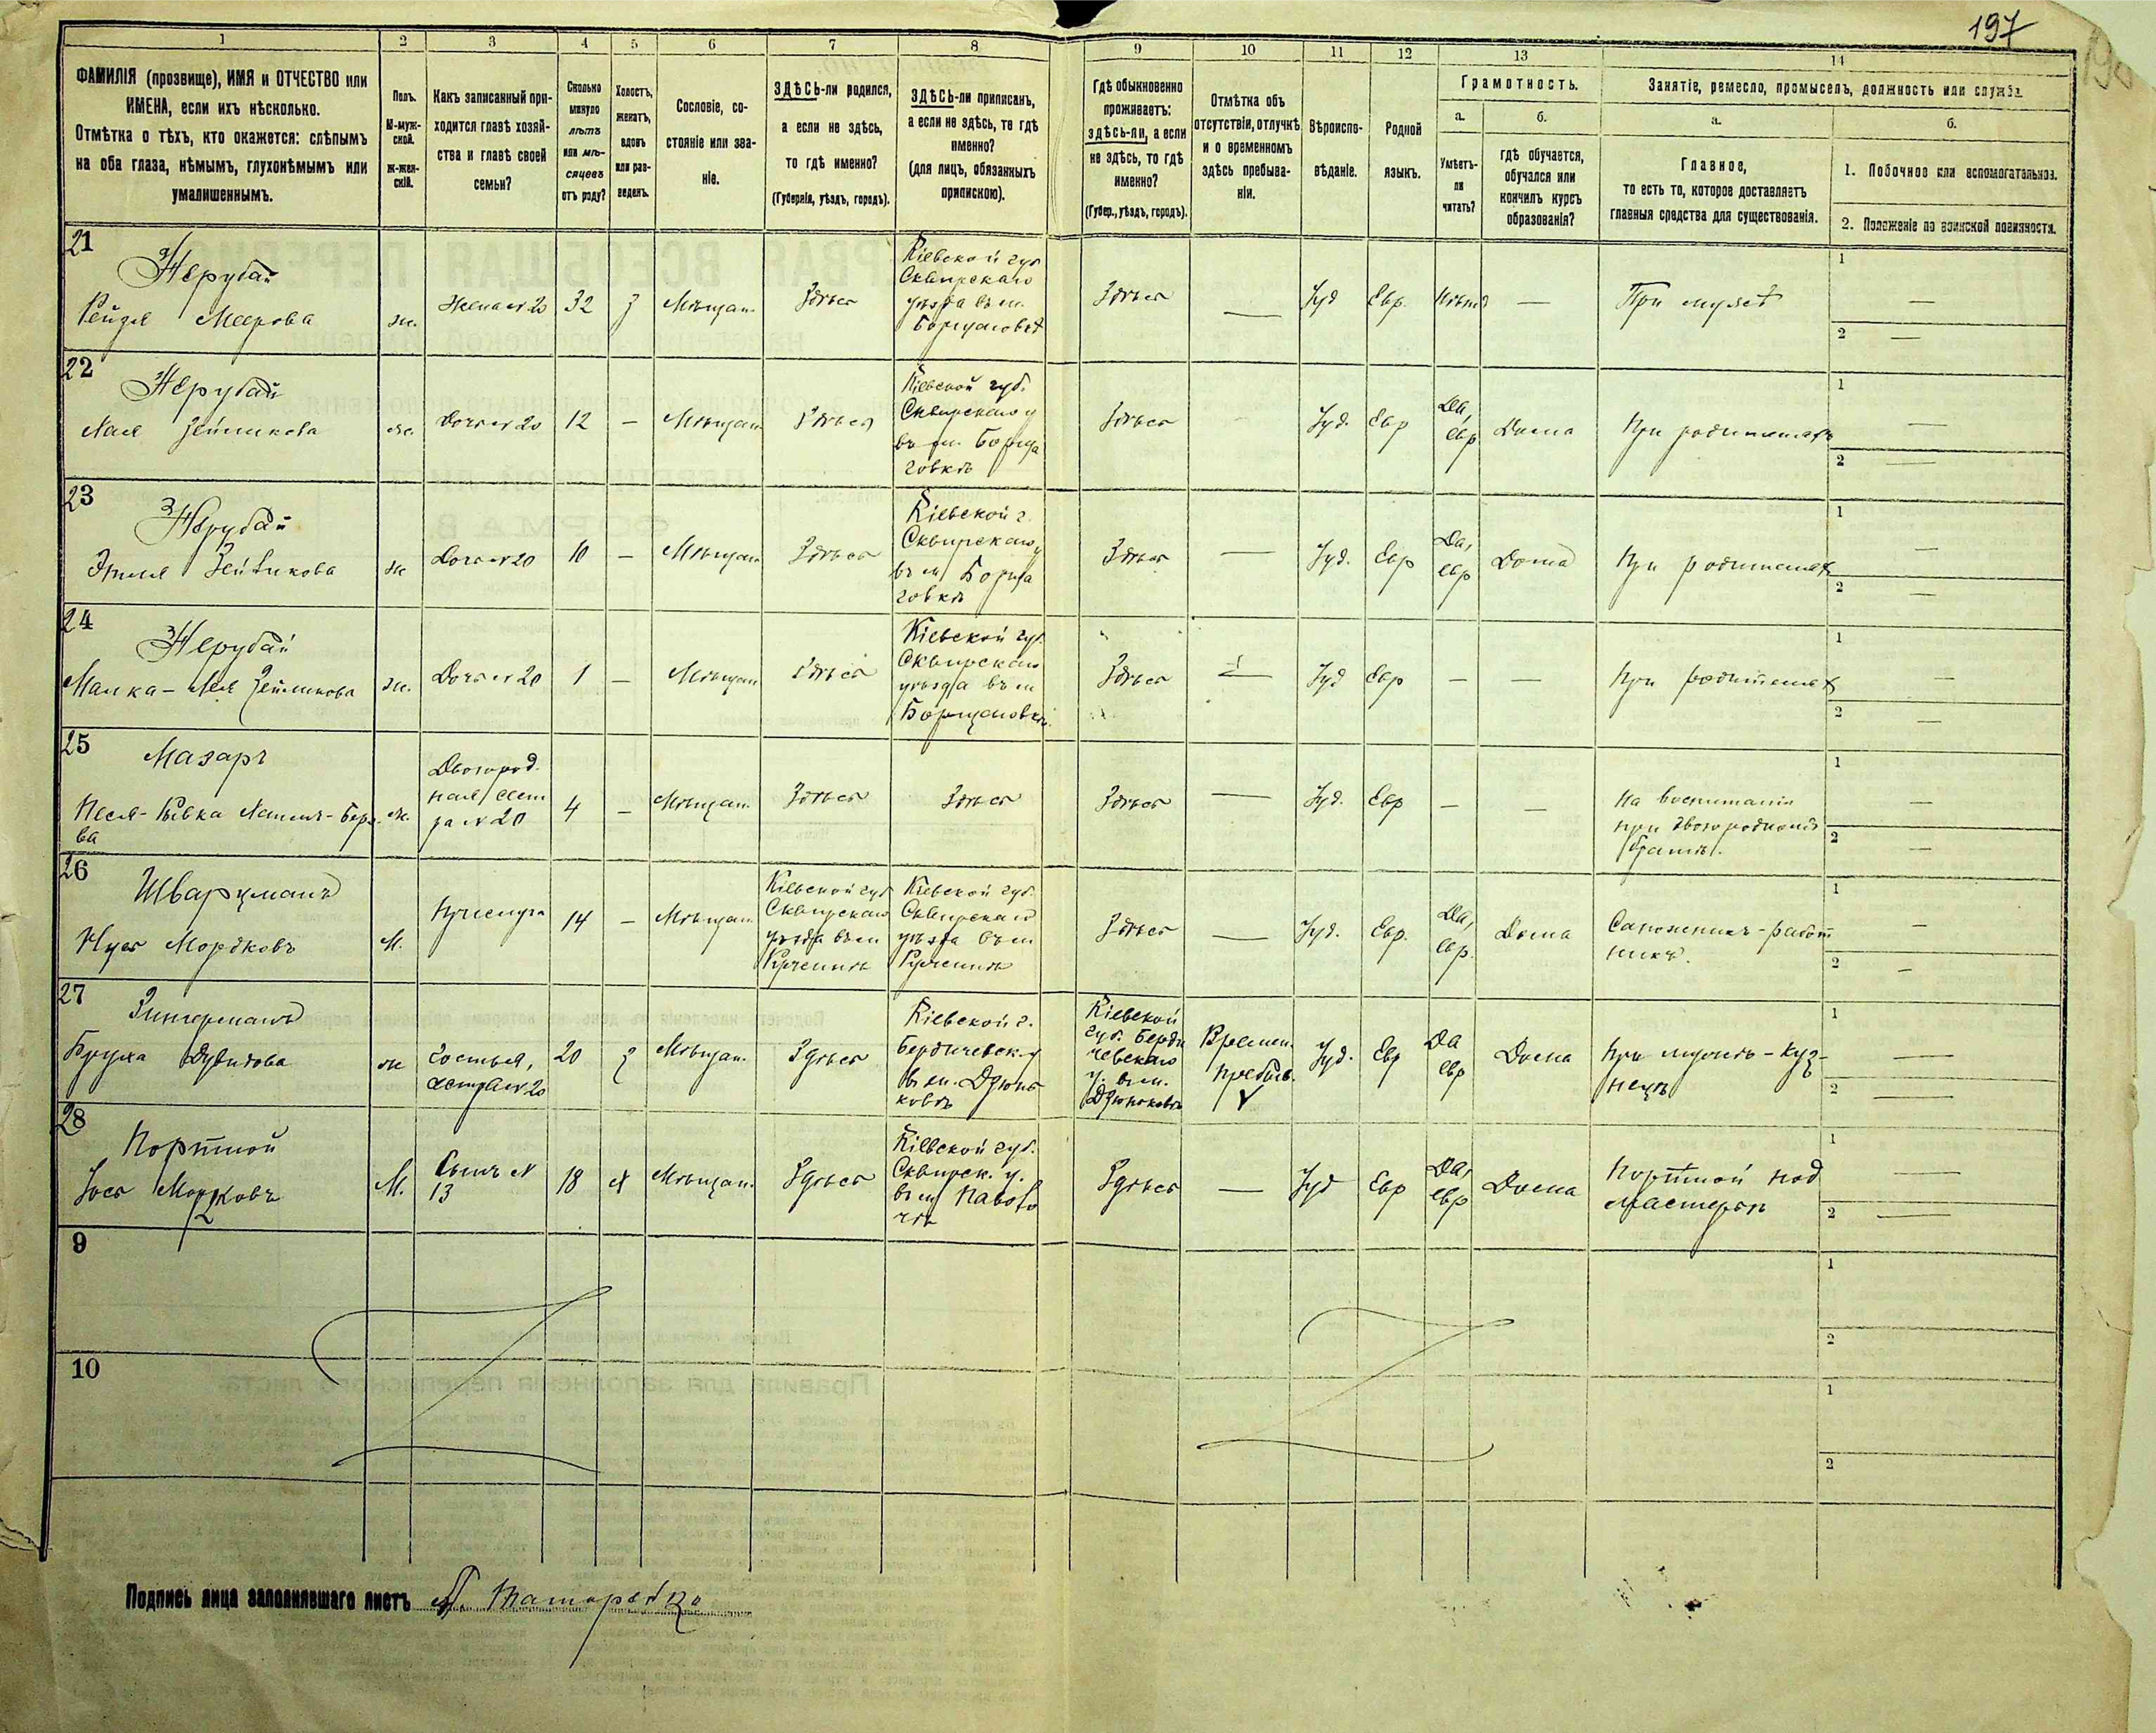 197
1 2 3 4 5 6 7 8 9 10 11 12 13 14
ФАМИЛІЯ (прозвище), ИМЯ и ОТЧЕСТВО или
ИМЕНА, если ихъ нѣсколько.
Отмѣтка о тѣхъ, кто окажется: слѣпымъ
на оба глаза, нѣмымъ, глухонѣмымъ или
умалишеннымъ.
Полъ.
М-муж-
ской.
Ж-жен-
скій.
Какъ записанный при-
ходится главѣ хозяй-
ства и главѣ своей
семьи?
Сколько
минуло
лѣтъ
или мѣ-
сяцевъ
отъ роду?
Холостъ,
женатъ,
вдовъ
или раз-
веденъ.
Сословіе, со-
стояніе или зва-
ніе.
ЗДѢСЬ-ли родился,
а если не здѣсь,
то гдѣ именно?
(Губернія, уѣздъ, городъ).
ЗДѢСЬ-ли приписанъ,
а если не здѣсь, то гдѣ
именно?
(для лицъ, обязанныхъ
припискою).
Гдѣ обыкновенно
проживаетъ:
здѣсь-ли, а если
не здѣсь, то гдѣ
именно?
(Губер., уѣздъ, городъ).
Отмѣтка объ
отсутствіи, отлучкѣ
и о временномъ
здѣсь пребыва-
ніи.
Вѣроиспо-
вѣданіе.
Родной
языкъ.
Грамотность.
а.
Умѣетъ-
ли
читать?
б.
гдѣ обучается,
обучался или
кончилъ курсъ
образованія?
Занятіе, ремесло, промыселъ, должность или служба.
а.
Главное,
то есть то, которое доставляетъ
главныя средства для существованія.
б.
1. Побочное или вспомогательное.
2. Положеніе по воинской повинности.
21
Нерубай
Рейзя Меерова
ж.
Жена № 20
32
з
Мѣщан.
Здѣсь
Кіевской губ
Сквирскаго
уѣзда въ м.
Здѣсь
—
Іуд
Евр.
Нѣтъ
—
При мужѣ
1 —
2 —
22
Нерубай
Хая Зейликова
ж.
Дочь № 20
12
—
Мѣщан.
Здѣсь
Кіевской губ.
Сквирскаго у
въ м. Борща
говкѣ
Здѣсь
Іуд.
Евр
Да,
евр
Дома
При родителяхъ
1 —
2 —
23
Нерубай
Зейликова
ж
Дочь № 20
10
—
Мѣщан
Здѣсь
Кіевской г.
Сквирскаго у
въ м Борща
говкѣ
Здѣсь
—
Іуд.
Евр
Да,
евр
Дома
При родителях
1 —
2 —
24
Нерубай
Малка - Лея Зейликова
ж.
Дочь № 20
1
—
Мѣщан
Здѣсь
Кіевской губ.
Сквирскаго
уѣзда въ м
Борщаговкѣ
Здѣсь
—
Іуд
Евр
—
—
При родителях
1 —
2 —
25
Мазаръ
Песя - Ривка
ва
ж.
Двоюрод.
ная сест
ра № 20
4
—
Мѣщан.
Здѣсь
Здѣсь
Здѣсь
—
Іуд.
Евр
—
—
На воспитаніи
при двоюродномъ
братѣ.
1 —
2 —
26
Шварцманъ
Мордковъ
М.
Прислуга
14
—
Мѣщан.
Кіевской губ
Сквирскаго
уѣзда въ м
Кіевской губ.
Сквирскаго
уѣзда въ м
Здѣсь
—
Іуд.
Евр.
Да,
евр.
Дома
Сапожникъ - работ
никъ.
1 —
2 —
27
Зингерманъ
Бруха Дувидова
ж
Гостья,
сестра № 20
20
з
Мѣщан.
Здѣсь
Кіевской г.
Бердичевск. у
въ м. Дзюнь
ковѣ
Кіевской
губ. Берди
чевскаго
у. въ м.
Дзюньковѣ
Времен.
пребыв.
Іуд.
Евр
Да
евр
Дома
При мужѣ - куз-
нецѣ
1 —
2 —
28
Портной
Іось Мордковъ
М.
Сынъ №
13
18
х
Мѣщан.
Здѣсь
Кіевской губ.
Сквирск. у.
въ м Паволо
чѣ
Здѣсь
—
Іуд
Евр
Да,
евр
Дома
Портной под
мастерье
1 —
2 —
9
1
2
10
1
2
Подпись лица заполнявшаго листъ